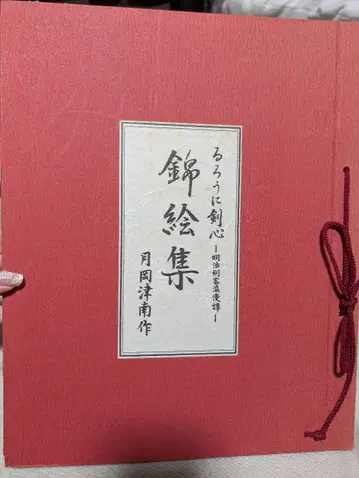 るろうに剣心
―明治剣客浪漫譚―
錦絵集
月岡津南作